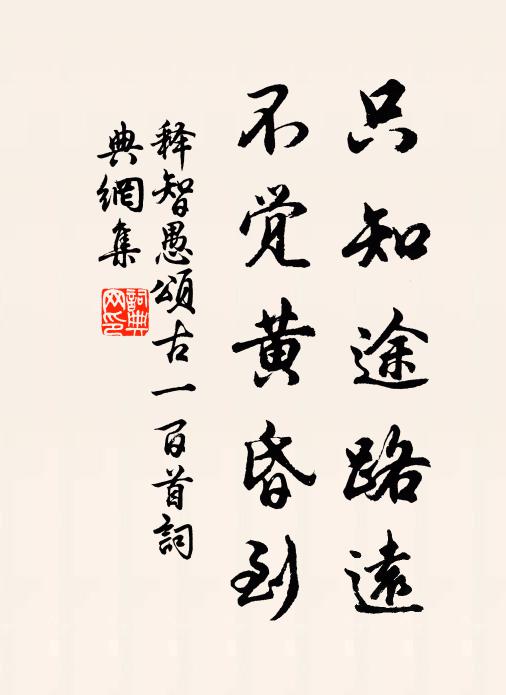 只知途路遠
不觉黄昏到
释智愚頌古一百首詞
典網集
詞典网印